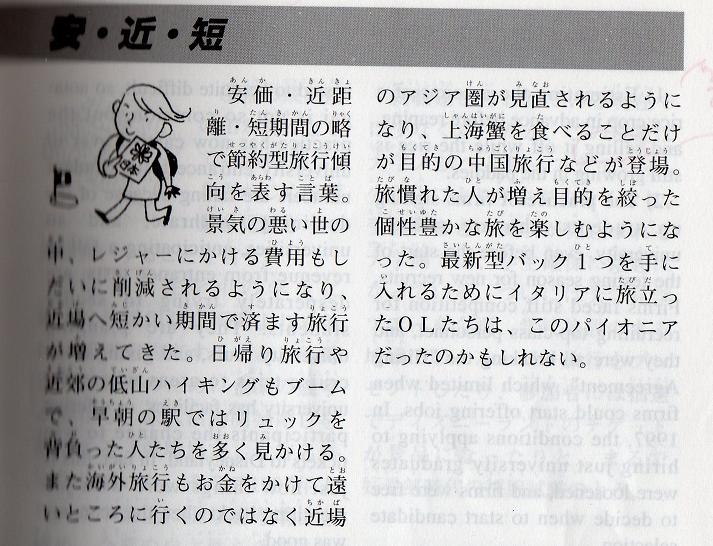 安・近・短
安価・近距
離・短期間の略
で節約型旅行傾
向を表す言葉。
景気の悪い世の
中、レジャーにかける費用もし
だいに削減されるようになり、
近場へ短かい期間で済ます旅行
が増えてきた。日帰り旅行や
近郊の低山ハイキングもブーム
で、早朝の駅ではリュックを
背負った人たちを多く見かける。
また海外旅行もお金をかけて遠
いところに行くのではなく近場
のアジア圏が見直されるように
なり、上海蟹を食べることだけ
が目的の中国旅行などが登場。
旅慣れた人が増え目的を絞った
個性豊かな旅を楽しむようにな
った。最新型バック1つを手に
入れるためにイタリアに旅立っ
たOLたちは、このパイオニア
だったのかもしれない。
日本